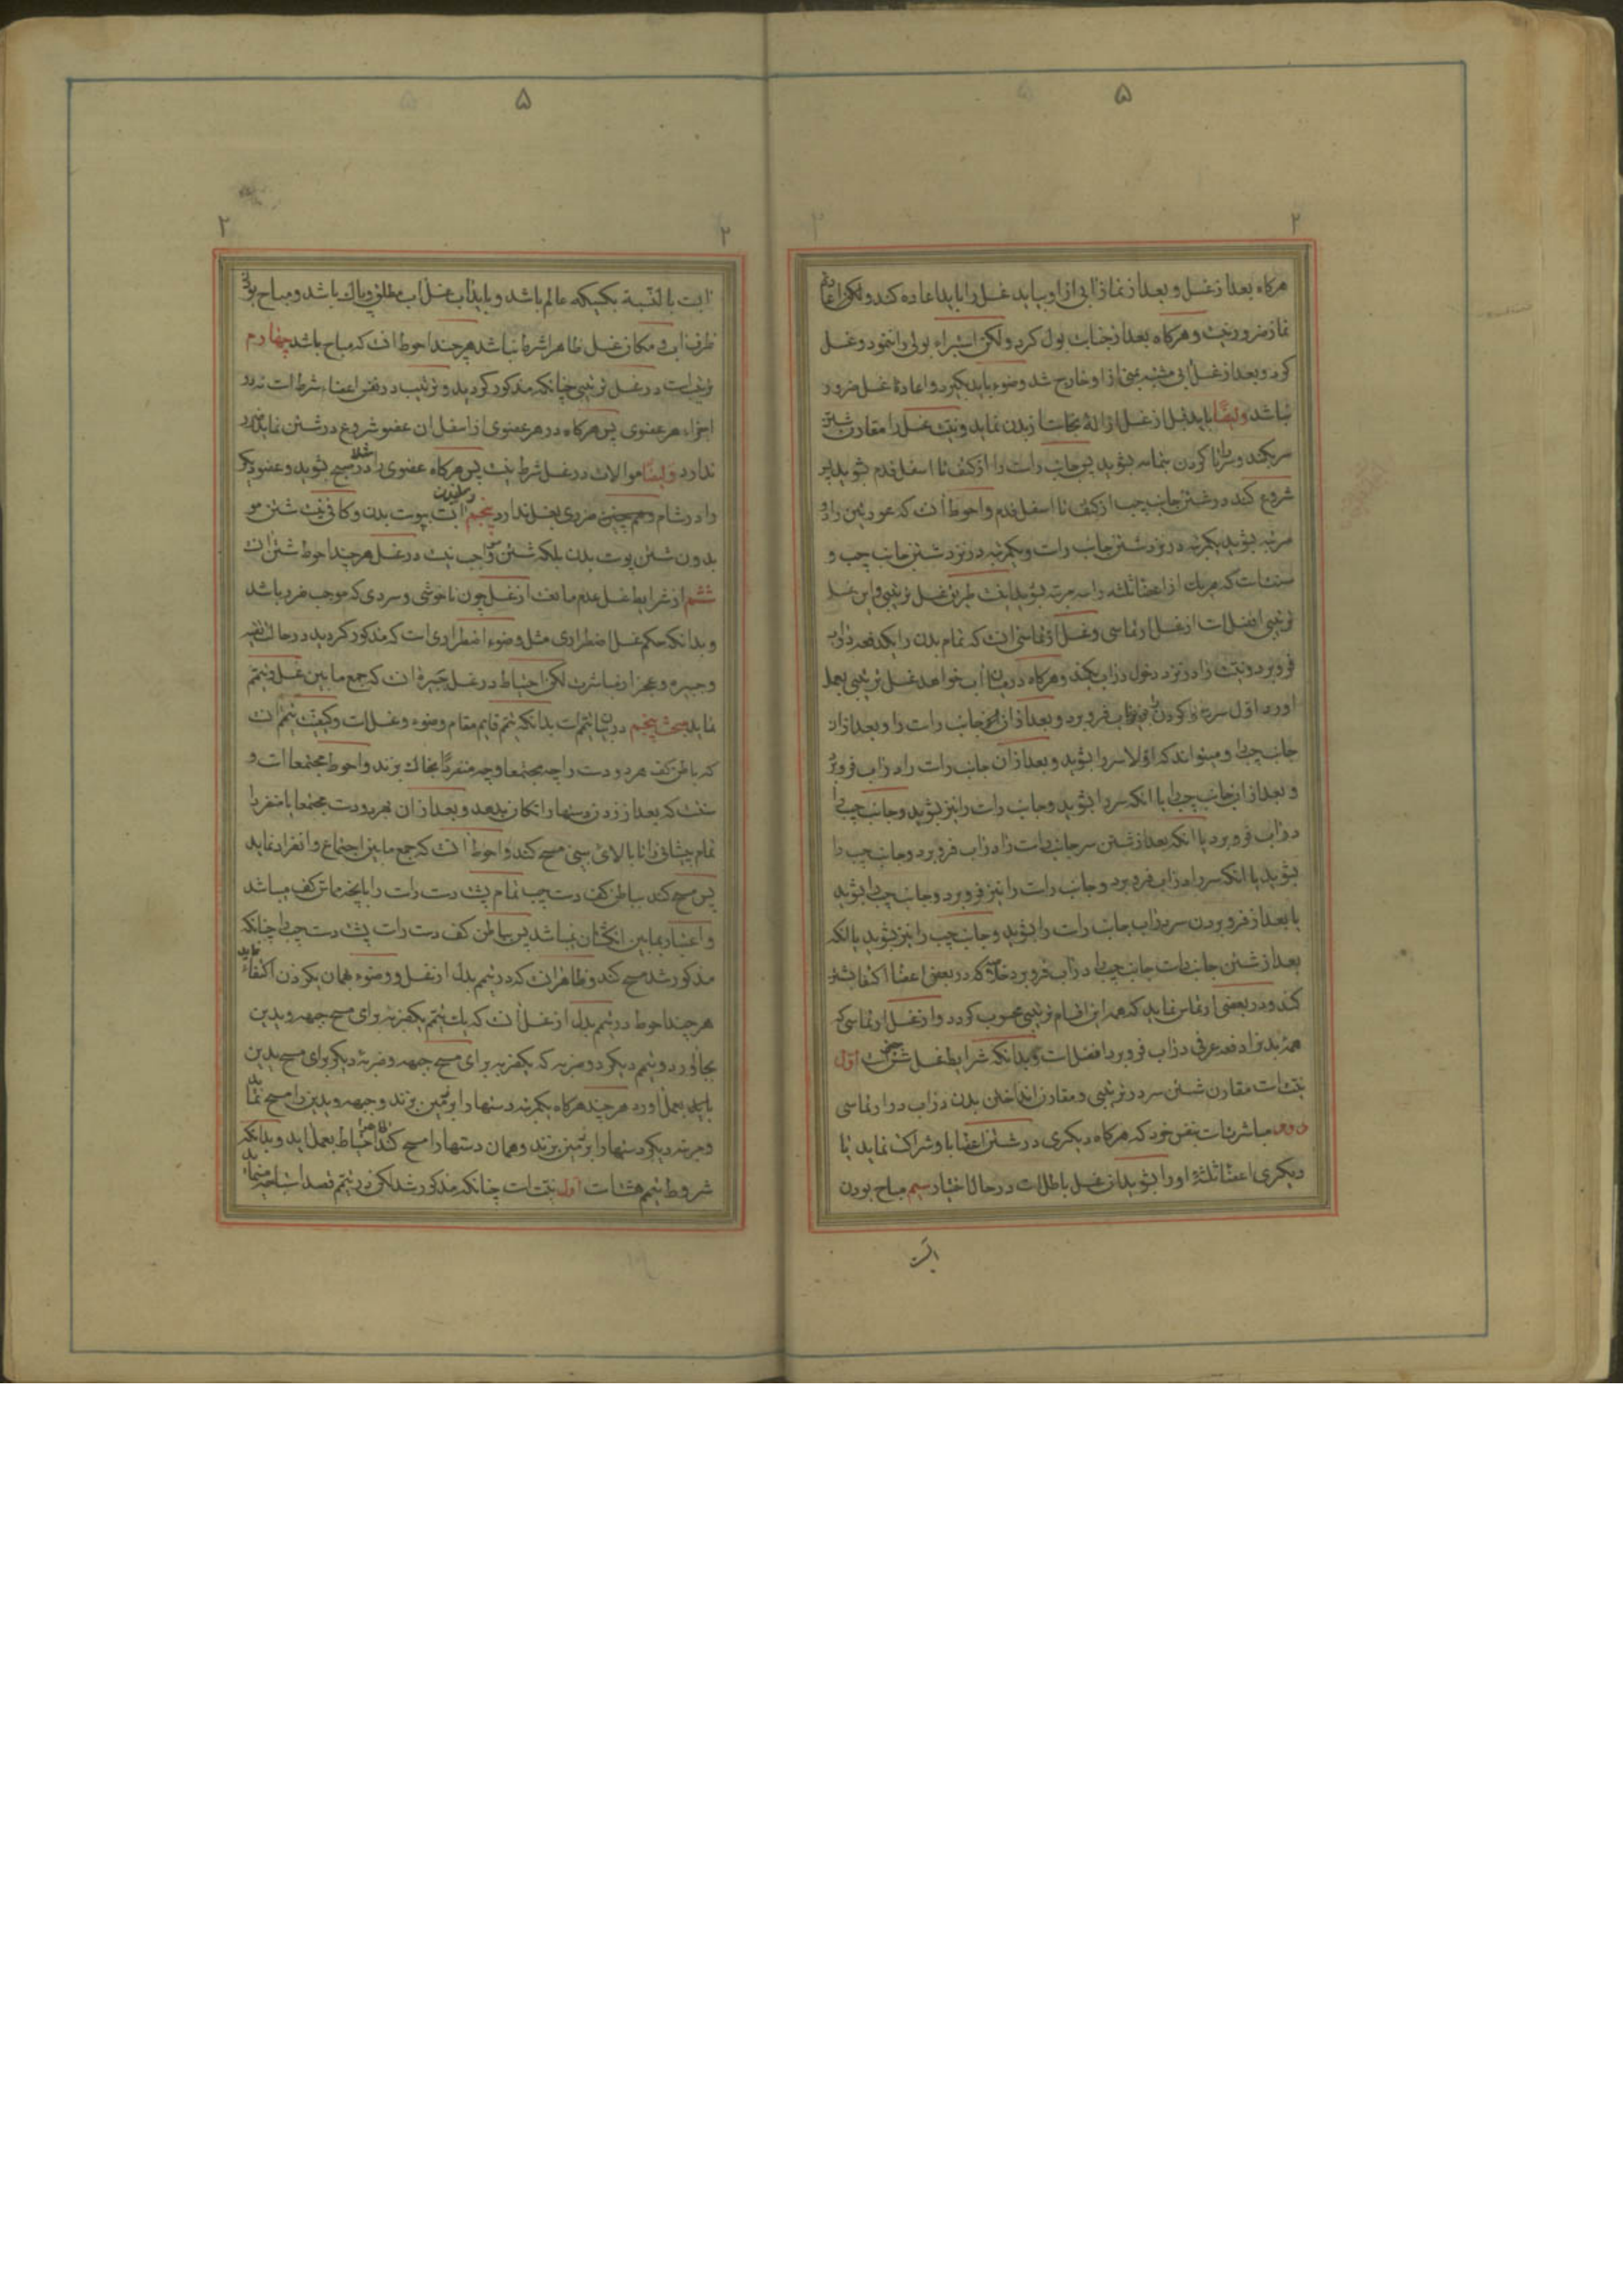 ۵
۲
هرکاه بعد از غسل و بعد از نماز آبی از او بیاید غسل را باید اعاده کند ولکن اعادۀ
نماز ضرور نیست و هرکاه بعد از جنابت بول کرد ولکن استبراء بولی را ننمود و غسل
کرد و بعد از غسل آبی مشتبه بمنی از او خارج شد وضوء باید بکیرد و اعادۀ غسل ضرور
نباشد وایضًا باید قبل از غسل ازالۀ نجاست از بدن نماید و نیت غسل را مقارن شستن
سر بکند و سر را تا کردن بتمامه بشوید پس جانب راست را از کتف تا اسفل قدم بشوید پس
شروع کند در شستن جانب چپ از کتف تا اسفل قدم و احوط آنست که عورتین را دو
مرتبه بشوید یکمرتبه در نزد شستن جانب راست و یکمرتبه در نزد شستن جانب چپ و
سنتست که هر یک از اعضاء ثلثه را سه مرتبه بشوید اینست طریق غسل ترتیبی و این غسل
ترتیبی افضلست از غسل ارتماسی و غسل ارتماسی آنست که تمام بدن را یکدفعه در آب
فرو برد و نیت را در نزد دخول در آب بکند و هرکاه در میان آب خواهد غسل ترتیبی بعمل
اورد اول سر را تا کردن در آب فرو برد و بعد از آن جانب راست را و بعد از آن
جانب چپ را و میتواند که اولا سر را بشوید و بعد از آن جانب راست را در آب فرو برد
و بعد از آن جانب چپ را یا انکه سر را بشوید و جانب راست را نیز بشوید و جانب چپ را
در آب فرو برد یا انکه بعد از شستن سر جانب راست را در آب فرو برد و جانب چپ را
بشوید یا انکه سر را در آب فرو برد و جانب راست را نیز فرو برد و جانب چپ را بشوید
یا بعد از فرو بردن سر در آب جانب راست را بشوید و جانب چپ را نیز بشوید یا انکه
بعد از شستن جانب راست جانب چپ را در آب فرو برد خلاصه که در بعضی اعضا اکتفا بشستن
کند و در بعضی ارتماس نماید که همه این اقسام ترتیبی محسوب کردد و از غسل ارتماسی که
همۀ بدن را دفعه عرفی در آب فرو برد افضلست و بدانکه شرایط غسل شش است اول
نیت است مقارن شستن سر در ترتیبی و مقارن انداختن بدن در آب در ارتماسی
دوم مباشرتست بنفس خود که هرکاه دیکری در شستن اعضا با او شراکت نماید یا
دیکری اعضاء ثلثۀ او را بشوید ان غسل باطلست در حال اختیار سیم مباح بودن
ابست
۵
۲
۲
ابست بالنسبة بکسیکه عالم باشد و باید آب غسل آب مطلق و پاک باشد و مباح بودن
ظرف آب و مکان غسل ظاهرا شرط نباشد هرچند احوط انست که مباح باشد چهارم
ترتیب است در غسل ترتیبی چنانکه مذکور کردید و ترتیب در نفس اعضاء شرطست نه در
اجزاء هر عضوی پس هرکاه در هر عضوی از اسفل ان عضو شروع در شستن نماید ضرر
ندارد وایضًا موالات در غسل شرط نیست پس هرکاه عضوی را مثلا در صبح بشوید و عضو دیکر
را در شام ضرری بغسل ندارد پنجم رسانیدن آبست بپوست بدن و کافی نیست شستن مو
بدون شستن پوست بدن بلکه شستن مو واجب نیست در غسل هرچند احوط شستن انست
ششم از شرایط غسل عدم مانعست از غسل چون ناخوشی و سردی که موجب ضرر باشد
و بدانکه حکم غسل اضطراری مثل وضوء اضطراری است که مذکور کردید در حال تقیه
و جبیره و عجز از مباشرت لکن احتیاط در غسل جبیره انست که جمع ما بین غسل و تیمم
نماید مبحث پنجم در بیان تیمم است بدانکه تیمم قایم مقام وضوء و غسل است و کیفیت تیمم آنست
که باطن کف هر دو دست را چه مجتمعا و چه منفردًا بخاک بزند و احوط مجتمعا است و
سنت است که بعد از زدن دستها را تکان بدهد و بعد از ان هر دو دست مجتمعا یا منفردا
تمام پیشانی را تا بالای بینی مسح کند و احوط آنست که جمع ما بین اجتماع و انفراد نماید
پس مسح کند بباطن کف دست چپ تمام پشت دست راست را بانچه مماس کف میباشد
و اعتبار بما بین انکشتان نمیباشد پس بباطن کف دست راست پشت دست چپ را چنانکه
مذکور شد مسح کند و ظاهر آنست که در تیمم بدل از غسل و وضوء بهمان یکزدن اکتفاء نماید
هرچند احوط در تیمم بدل از غسل آنست که یک تیمم بیکضربه برای مسح جبهه و یدین
بجا آورد و تیمم دیکر دو ضربه که یکضربه برای مسح جبهه و ضربۀ دیکر برای مسح یدین
باید بعمل آورد هرچند هرکاه یکمرتبه دستها را بزمین بزند و جبهه و یدین را مسح نماید
و مرتبه دیکر دستها را بزمین بزند و همان دستها را مسح کند احتیاط بعمل اید و بدانکه
شروط تیمم هشت است اول نیت است چنانکه مذکور شد لکن در تیمم قصد استباحه